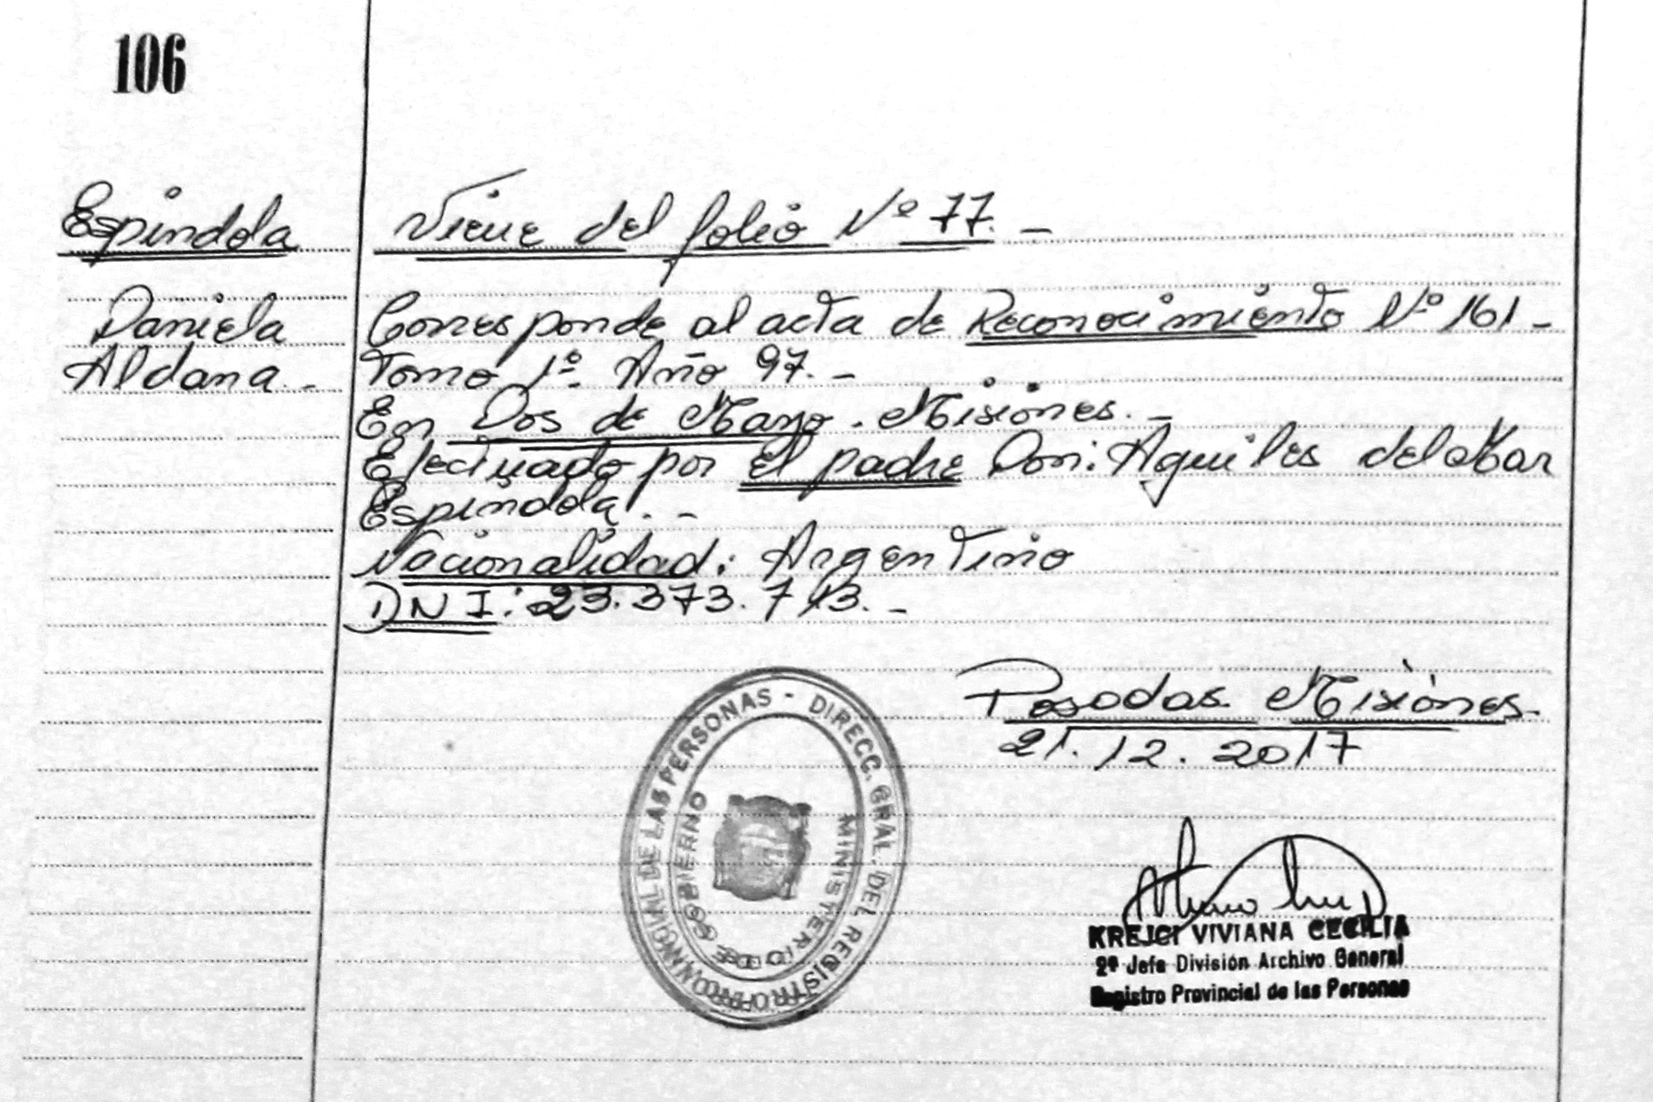 106
Espindola
Daniela
Aldana. -
Viene del folio Nº 77. -
Corresponde al acta de Reconocimiento Nº 161 -
Tomo 1º. Año 97. -
En Dos de Mayo. Misiones. -
Efectuado por el padre Don: Aquiles del Mar
Espindola. -
Nacionalidad: Argentino
DNI: 23.373.713. -
Posadas. Misiones.
21.12.2017
DIRECC. GRAL. DEL REGISTRO PROVINCIAL DE LAS PERSONAS -
MINISTERIO DE GOBIERNO
KREJCI VIVIANA CECILIA
2ª Jefa División Archivo General
Registro Provincial de las Personas